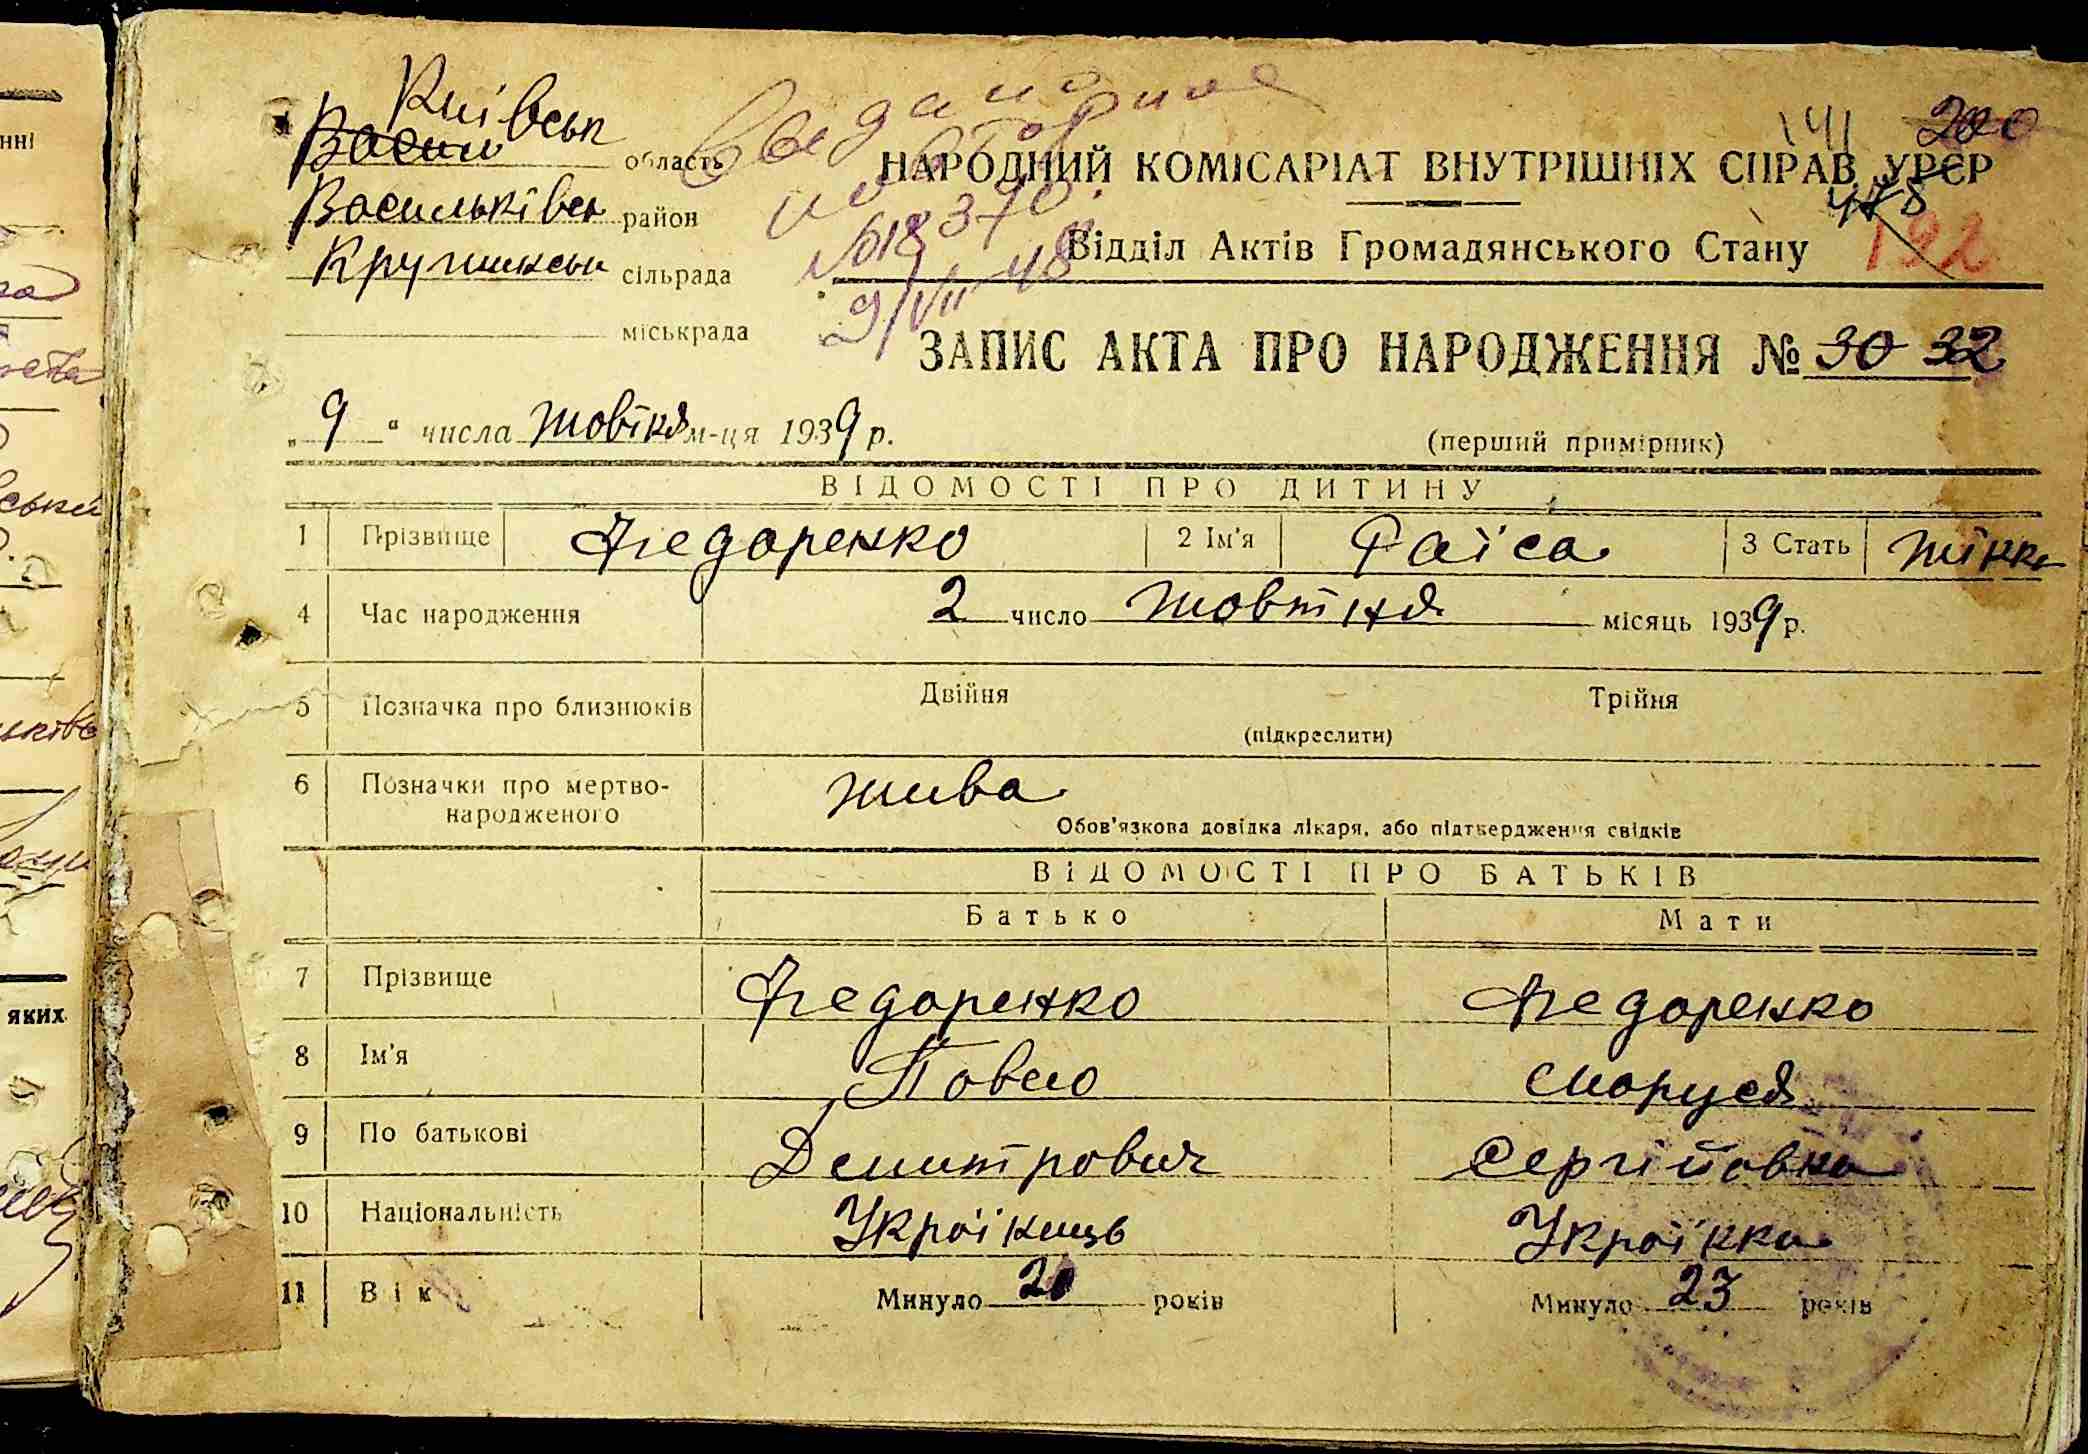 Київськ
Васил область
Васильківськ район
сільрада
міськрада
Выдано
повторное
№018370.
9/VII 48
141 200
НАРОДНИЙ КОМІСАРІАТ ВНУТРІШНІХ СПРАВ УРСР
478
Відділ Актів Громадянського Стану
192
ЗАПИС АКТА ПРО НАРОДЖЕННЯ № 30 32
„9“ числа Жовтня м-ця 1939 р.
(перший примірник)
ВІДОМОСТІ ПРО ДИТИНУ
1 Прізвище Федоренко 2 Ім'я Раїса 3 Стать жінк
4 Час народження 2 число жовтня місяць 1939 р.
5 Позначка про близнюків Двійня Трійня
(підкреслити)
6 Позначки про мертво-
народженого
жива
Обов'язкова довідка лікаря, або підтвердження свідків
ВІДОМОСТІ ПРО БАТЬКІВ
Батько Мати
7 Прізвище Федоренко Федоренко
8 Ім'я Павло Маруся
9 По батькові Демитрович Сергійовна
10 Національність Українць Українка
11 Вік Минуло 20 років Минуло 23 років
яких